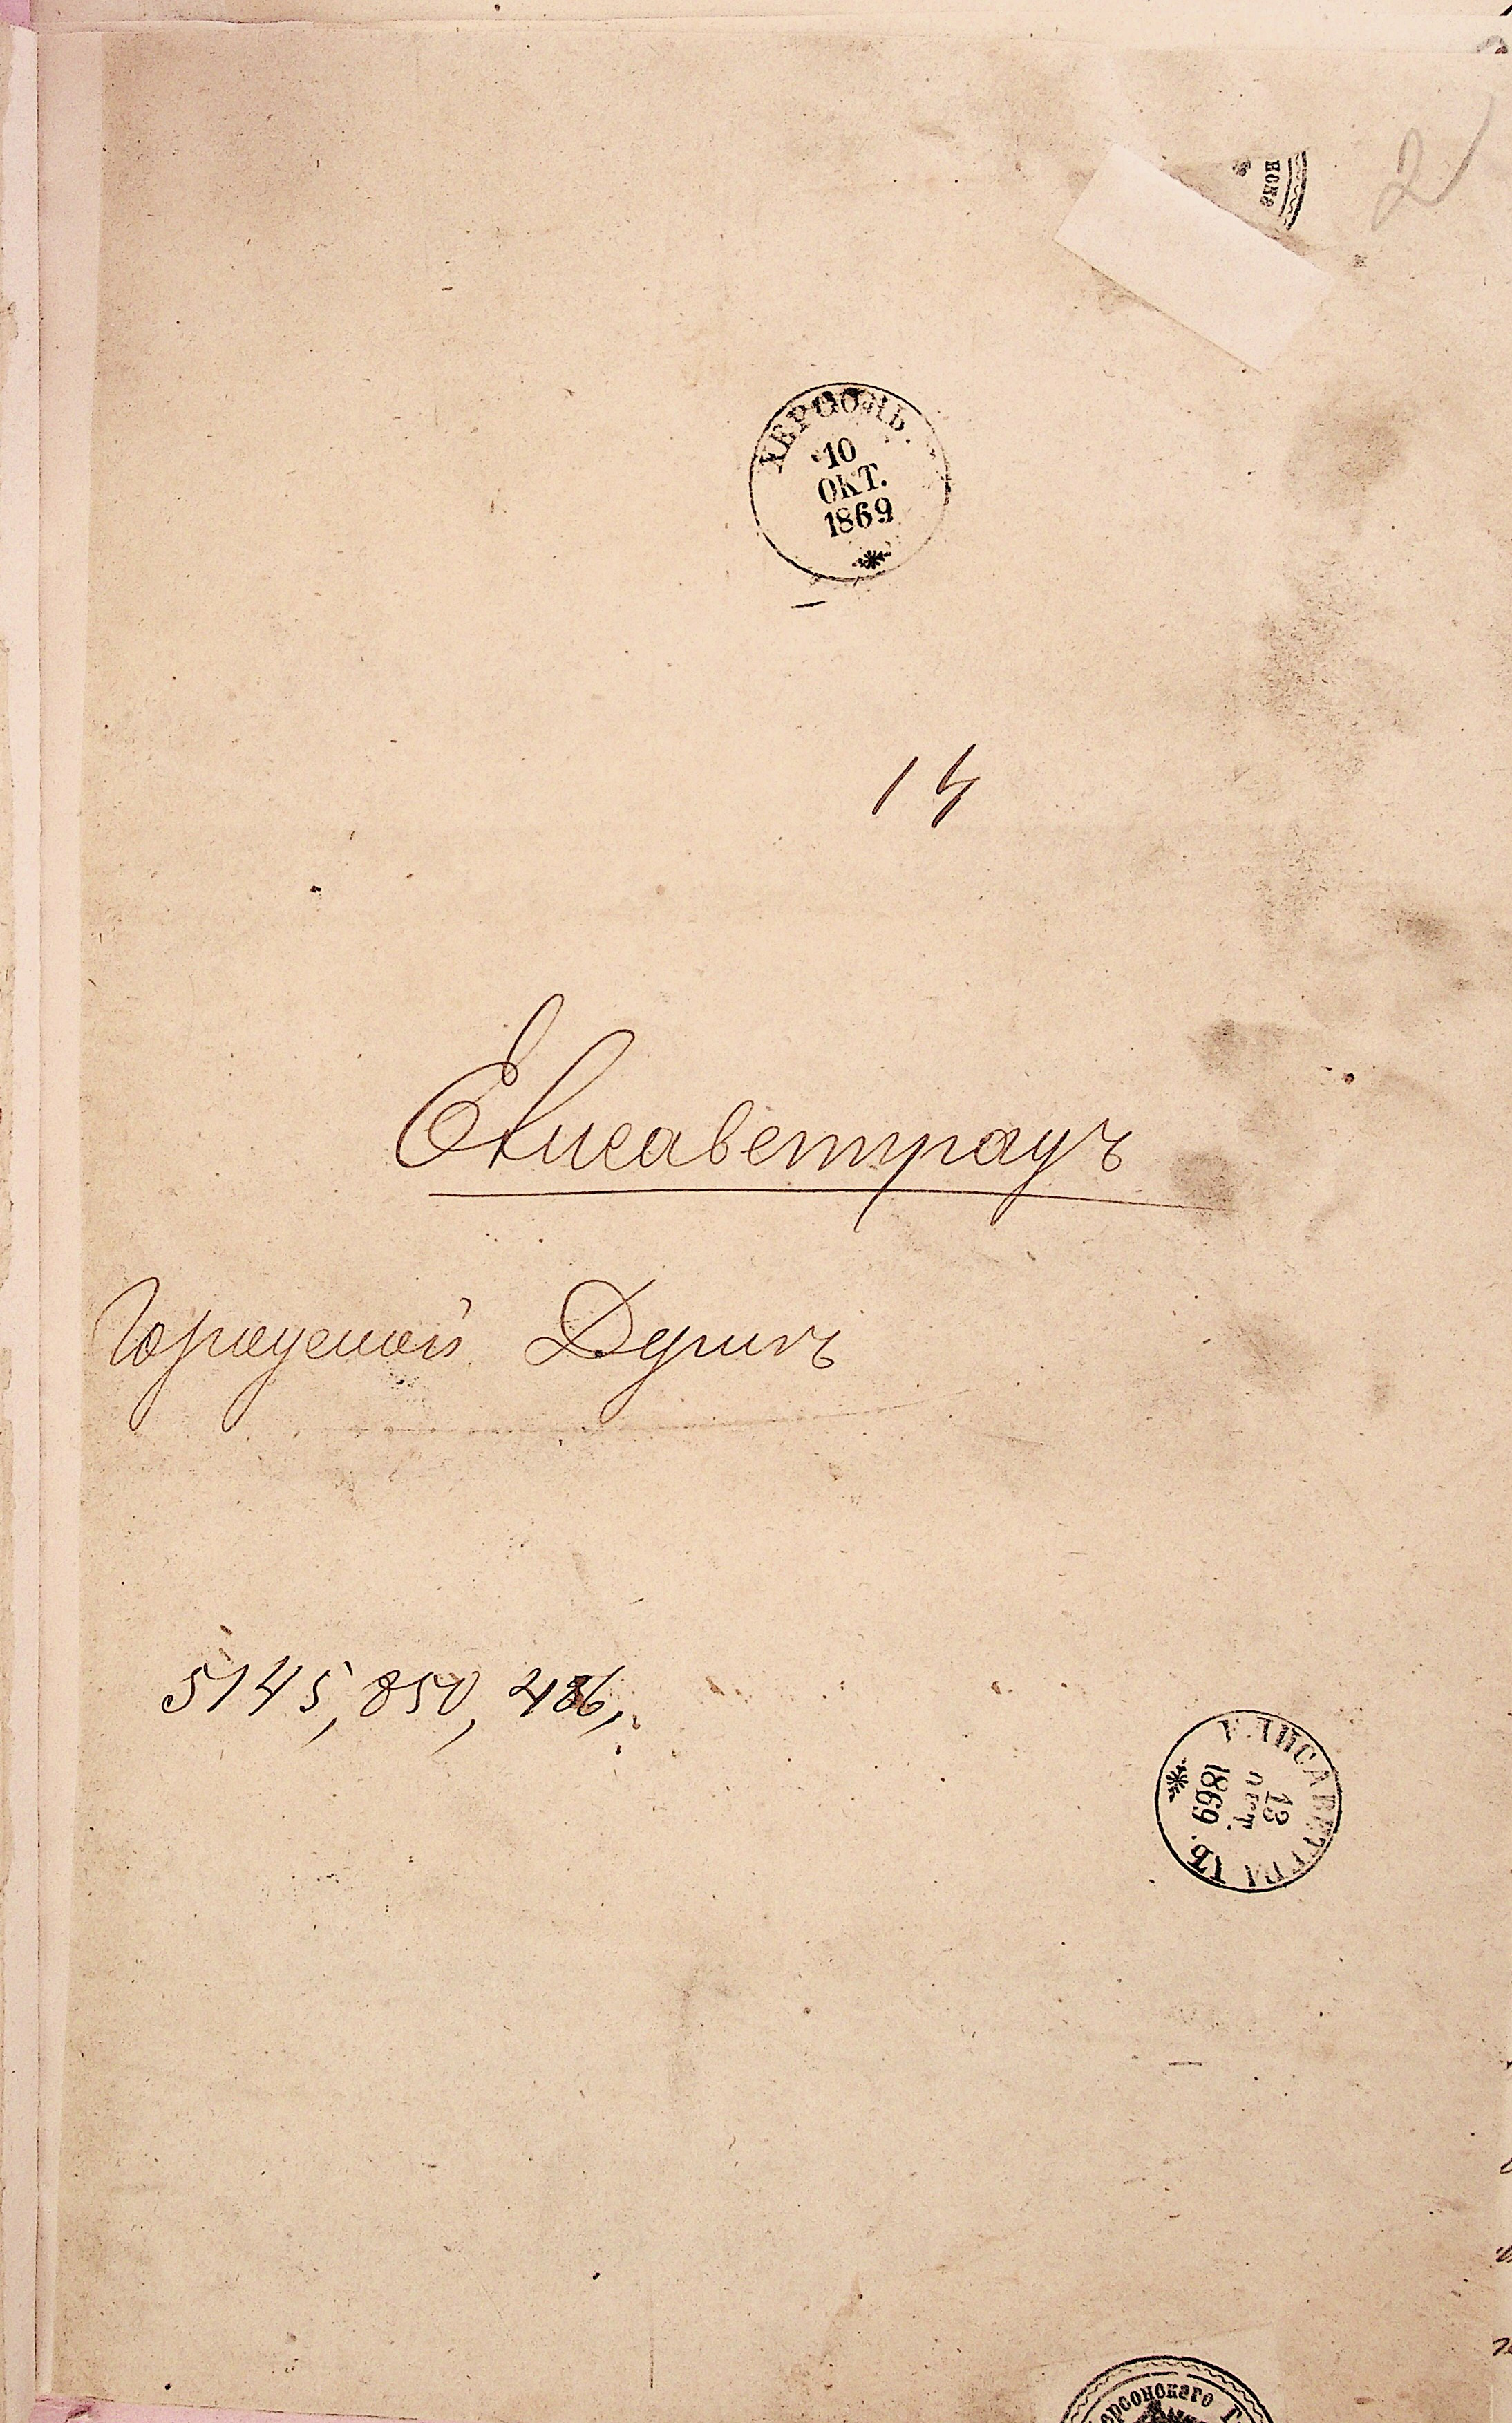 2
ХЕРСОНЪ.
10
ОКТ.
1869
14
Елисаветградъ
Городской Думѣ
5145, 850, 486,
ЕЛИСАВЕТГРАДЪ.
13
ОКТ.
1869
Херсонскаго